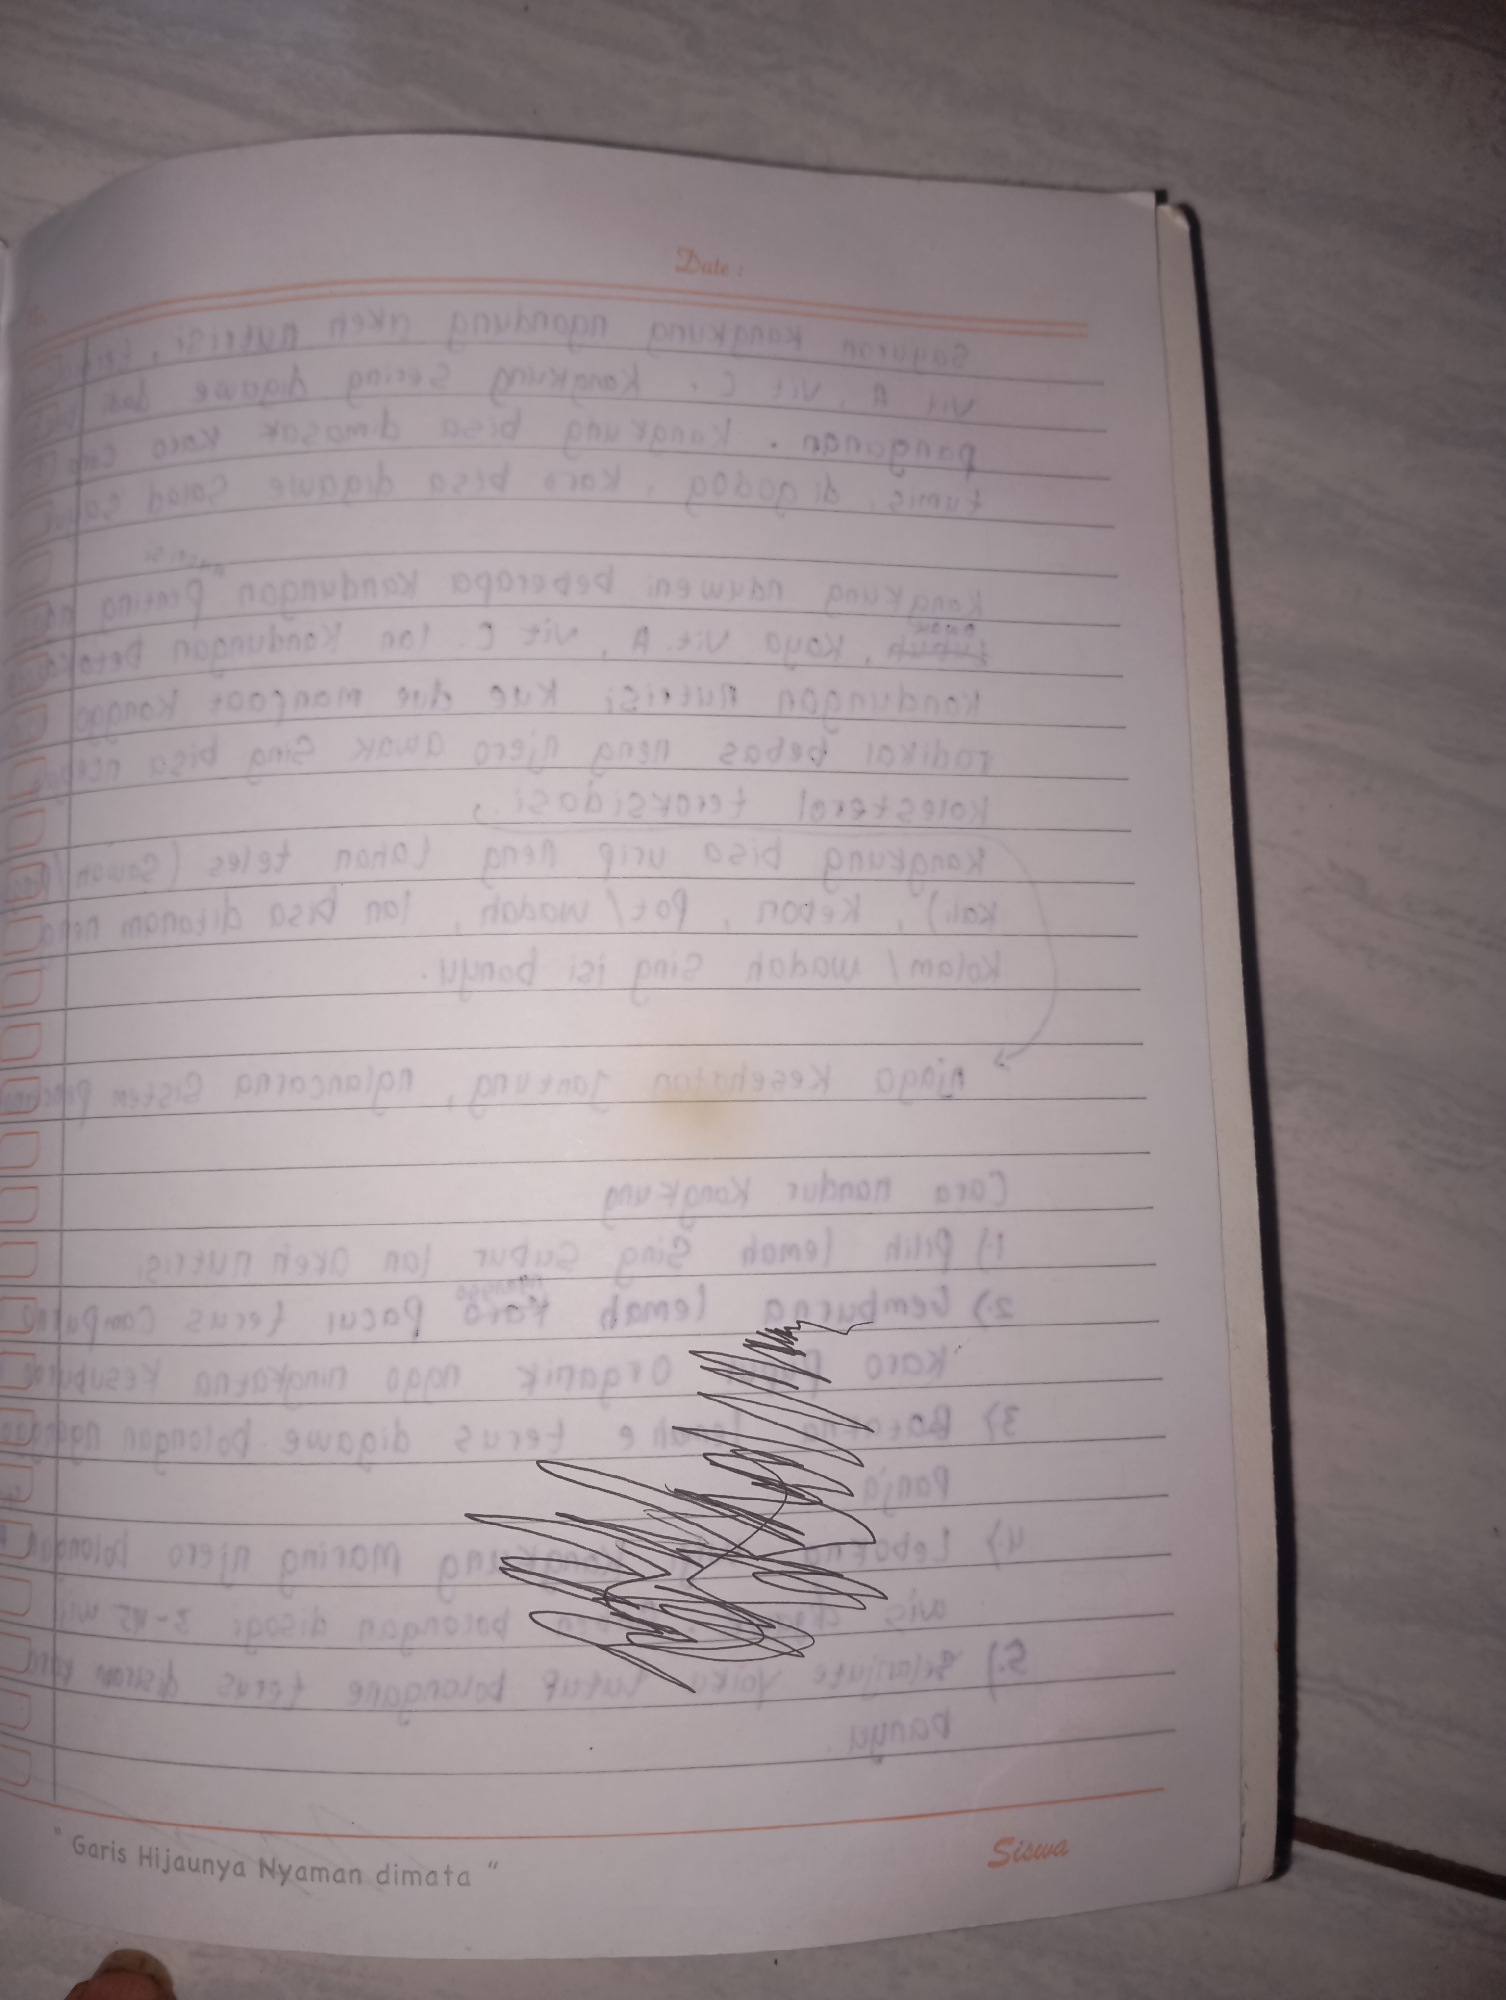 Date :
Sayuran kangkung ngandung akeh nutrisi,
Vit A, Vit C. Kangkung sering digawe
panganan. Kangkung bisa dimasak karo cara
tumis, digodog, karo bisa digawe salad sayur
nutrisi
Kangkung nduweni beberapa kandungan penting
awak
tubuh, kaya Vit. A, Vit C. lan kandungan
kandungan nutrisi kue due manfaat kanggo
radikal bebas neng njero awak sing bisa
kolesterol teroksidasi.
kangkung bisa urip neng lahan teles (sawah/
kali), kebon, pot/wadah, lan bisa ditanam neng
kolam/wadah sing isi banyu.
njaga kesehatan jantung, nglancarna sistem
Cara nandur kangkung
1.) Pilih lemah sing subur lan akeh nutrisi
nganggo
2.) Gemburna lemah karo pacul terus campurna
karo pupuk organik nggo ningkatna
3.) Ratakna lemahe terus digawe bolongan
Panja
4.) Lebokna kangkung maring njero bolongan
wis bolongan disogi
5.) Selanjute yaiku tutup bolongane terus disiram karo
banyu.
" Garis Hijaunya Nyaman dimata "
Siswa